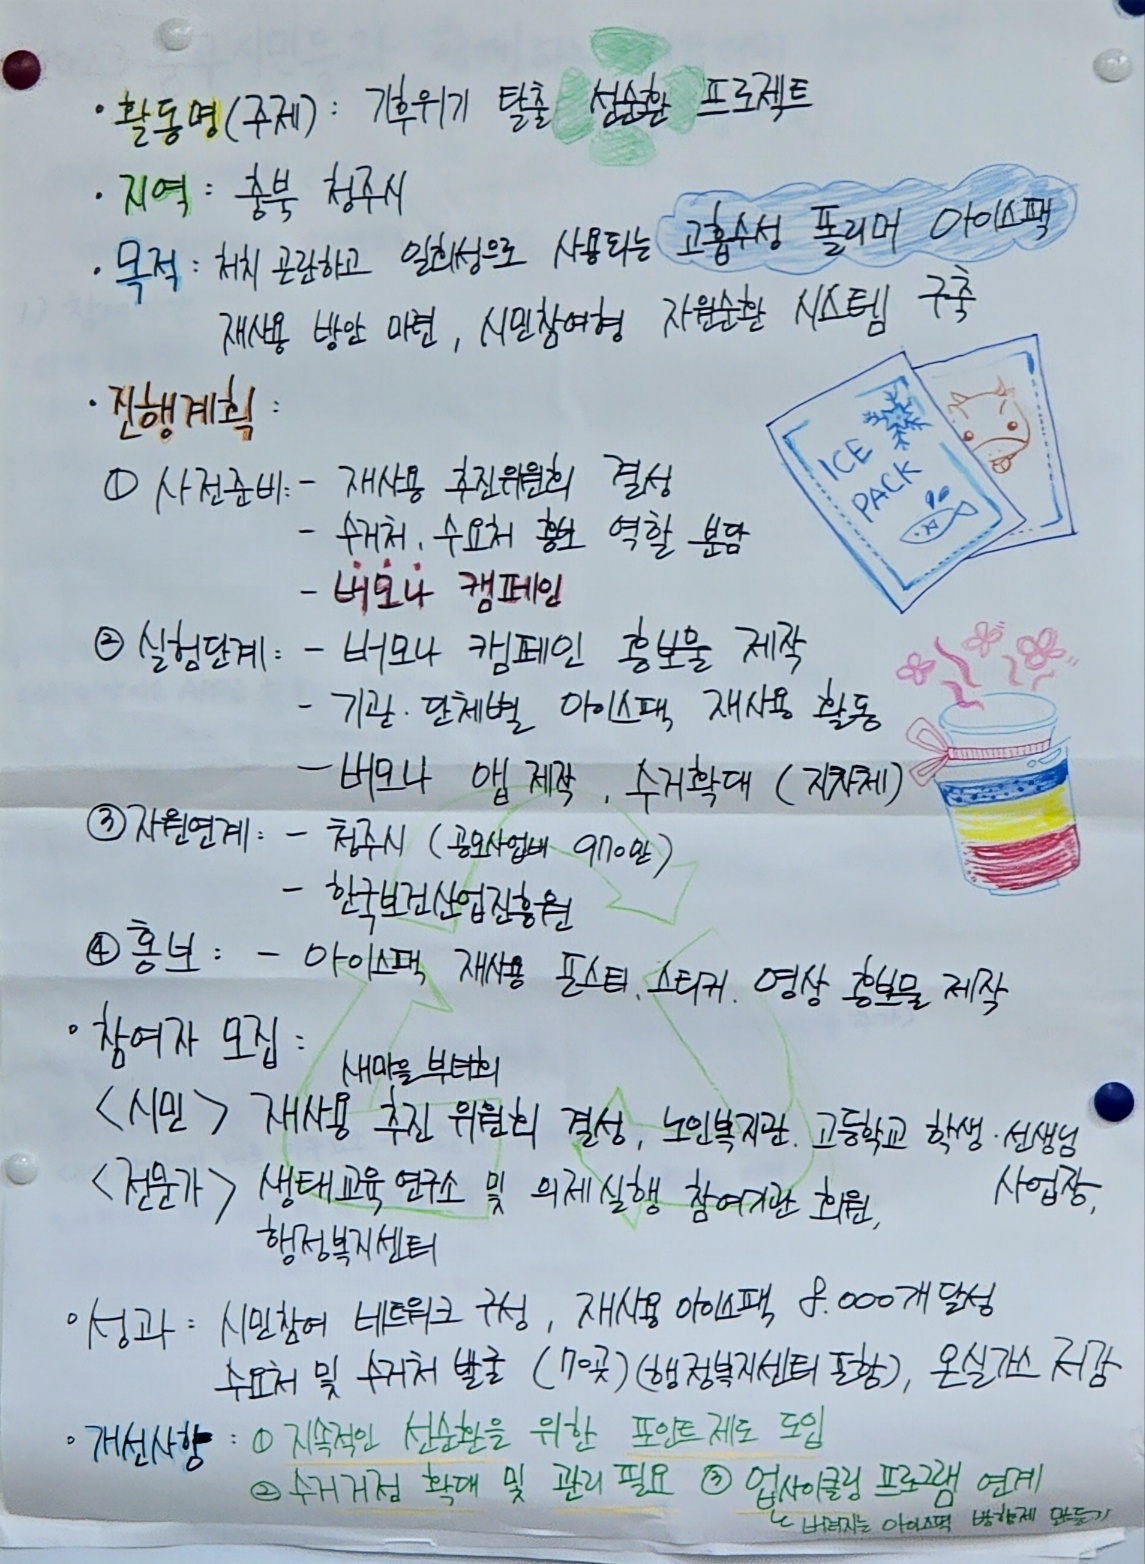 · 활동명(주제) : 기후위기 탈출 선순환 프로젝트
· 지역 : 충북 청주시
· 목적 : 처치 곤란하고 일회성으로 사용되는 고흡수성 폴리머 아이스팩
재사용 방안 마련, 시민참여형 자원순환 시스템 구축
· 진행계획 :
① 사전준비 : - 재사용 추진위원회 결성
- 수거처, 수요처 홍보 역할 분담
- 버모나 캠페인
② 실험단계 : - 버모나 캠페인 홍보물 제작
- 기관·단체별 아이스팩 재사용 활동
- 버모나 앱 제작, 수거확대 (지자체)
③ 자원연계 : - 청주시 (공모사업비 970만)
- 한국보건산업진흥원
④ 홍보 : - 아이스팩 재사용 포스터, 스티커, 영상 홍보물 제작
· 참여자 모집 :
새마을 부녀회
<시민> 재사용 추진 위원회 결성, 노인복지관, 고등학교 학생·선생님
사업장,
<전문가> 생태교육 연구소 및 의제실행 참여기관 회원,
행정복지센터
· 성과 : 시민참여 네트워크 구성, 재사용 아이스팩 8.000개 달성
수요처 및 수거처 발굴 (70곳)(행정복지센터 포함), 온실가스 저감
· 개선사항 : ① 지속적인 선순환을 위한 포인트 제도 도입
② 수거거점 확대 및 관리 필요 ③ 업사이클링 프로그램 연계
버려지는 아이스팩 방향제 만들기
ICE
PACK